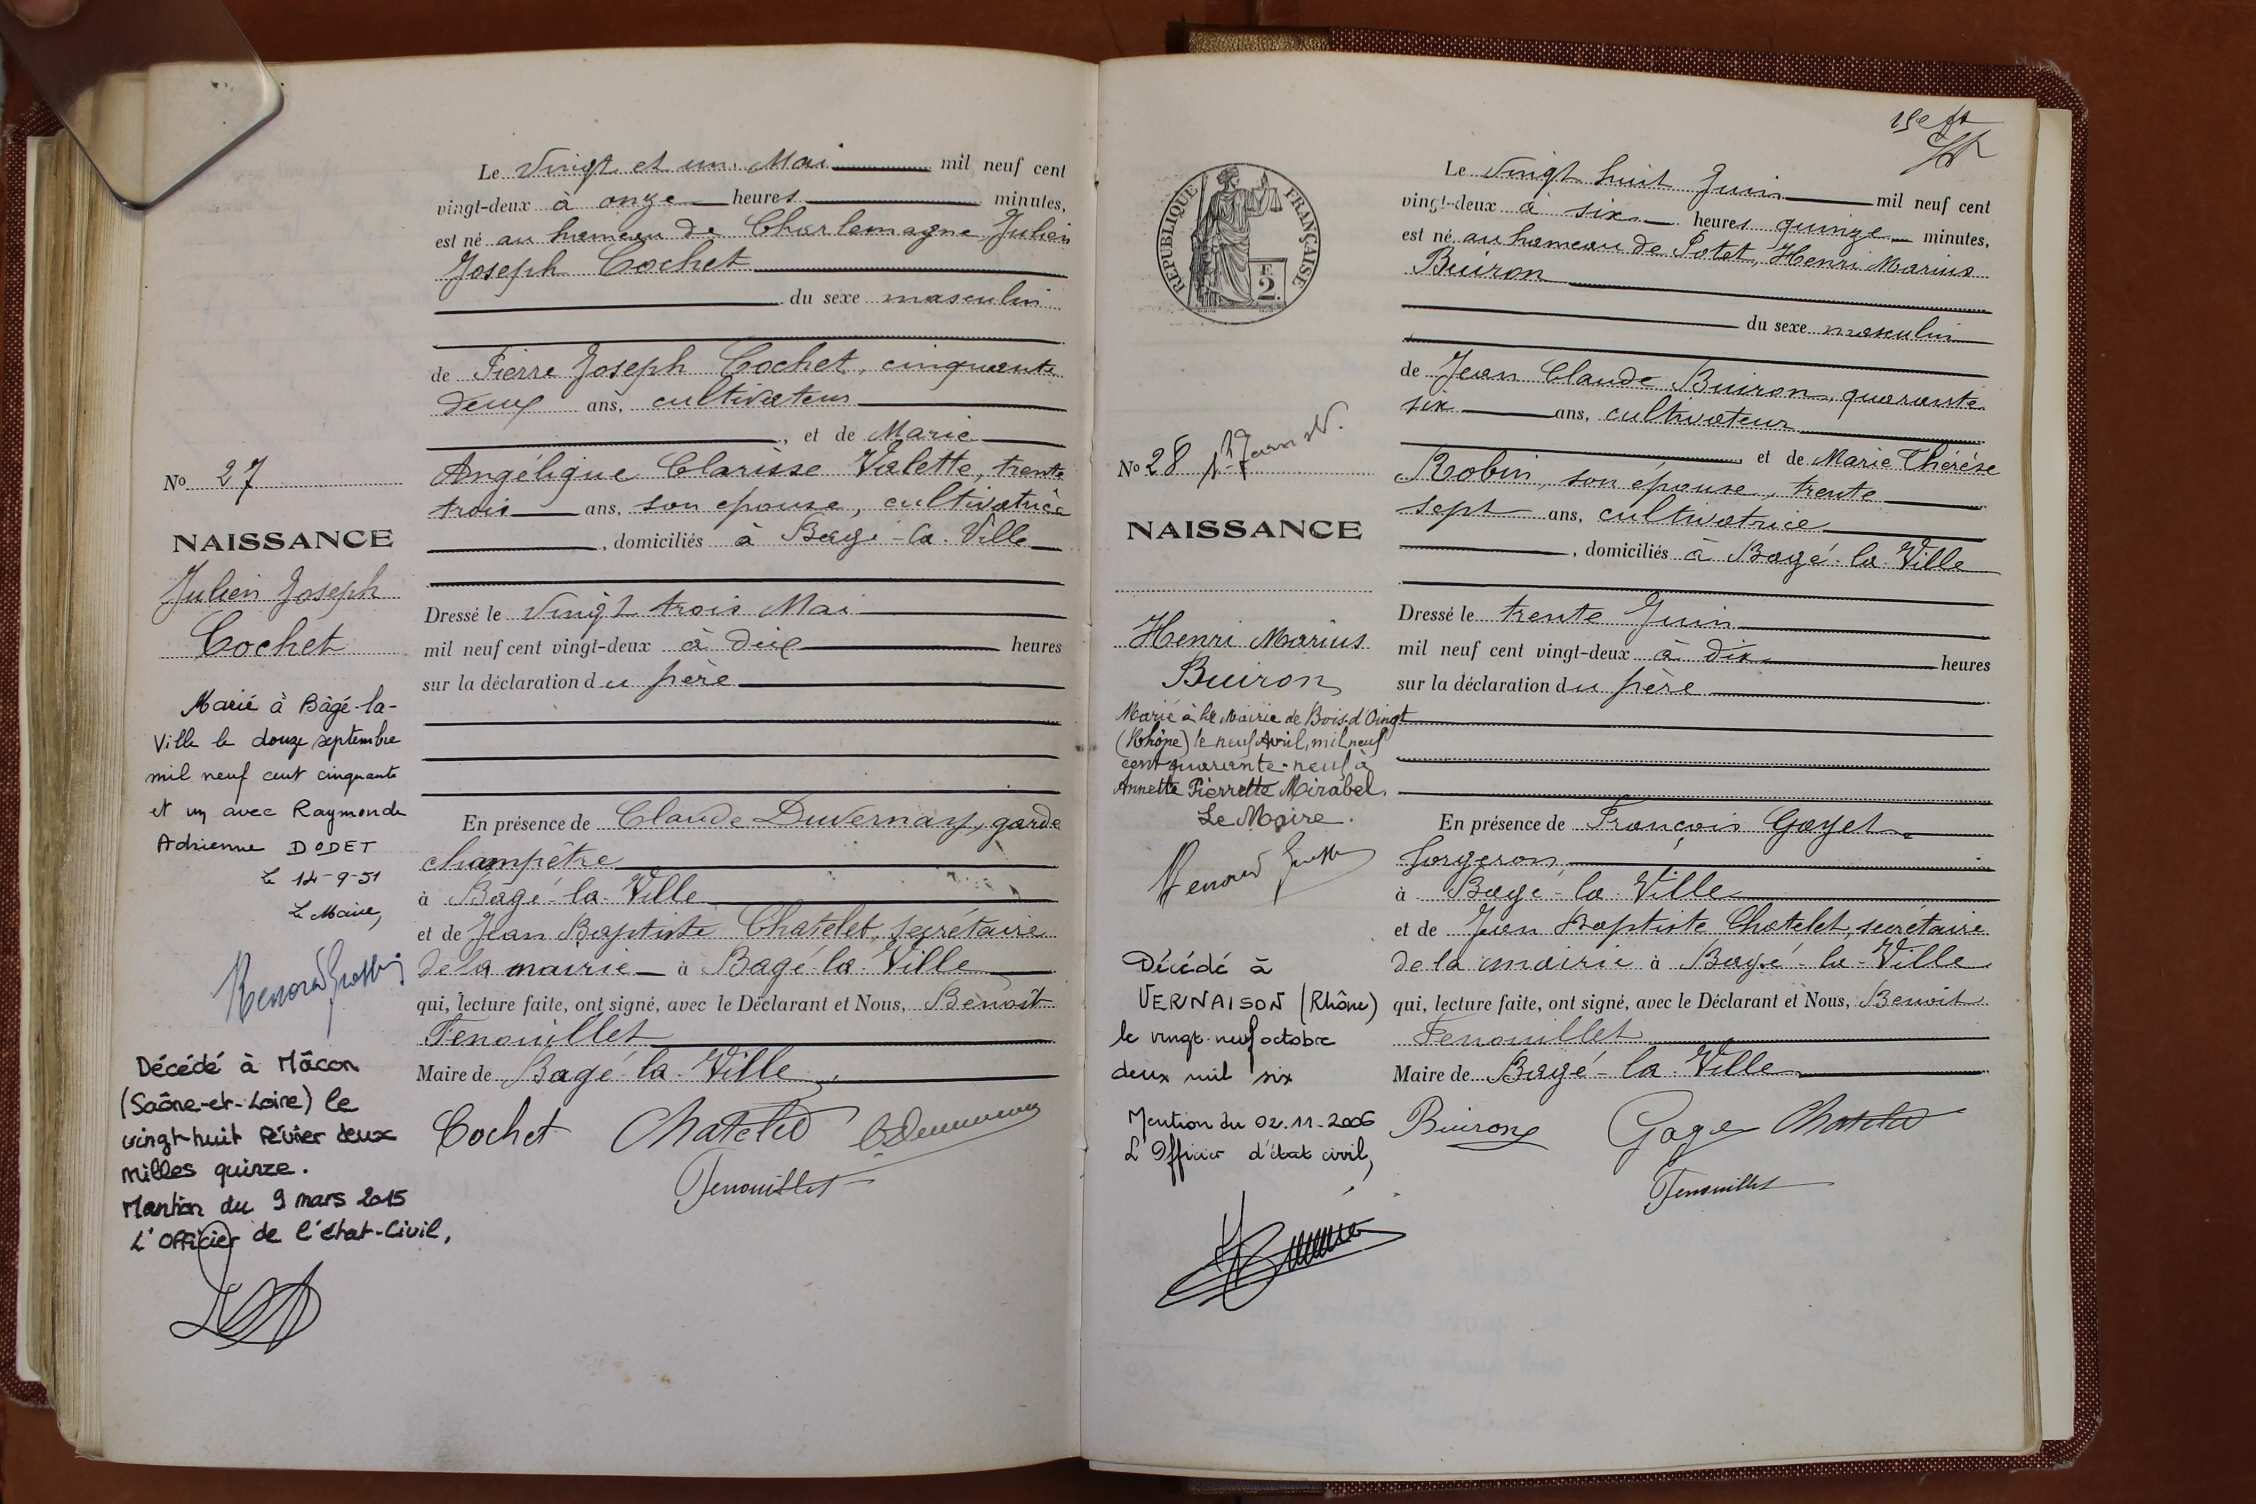 Le Vingt et un Mai mil neuf cent
vingt-deux à onze heures minutes,
est né au hameau de Charlemagne Julien
Joseph Cochet
du sexe masculin
de Pierre Joseph Cochet, cinquante
deux ans, cultivateur
, et de Marie
Angélique Clarisse Valette, trente
trois ans, son epouse, cultivatrice
, domiciliés à Bagé-la-Ville
Dressé le vingt trois Mai
mil neuf cent vingt-deux à dix heures
sur la déclaration du père
En présence de Claude Duvernay, garde
champêtre
à Bagé-la-Ville
et de Jean Baptiste Chatelet, secrétaire
de la mairie à Bagé-la-Ville
qui, lecture faite, ont signé, avec le Déclarant et Nous, Benoît
Fenouillet
Maire de Bagé-la-Ville
Cochet Chatelet
Fenouillet
No 27
NAISSANCE
Julien Joseph
Cochet
Marié à Bâgé-la-
Ville le douze septembre
mil neuf cent cinquante
et un avec Raymonde
Adrienne DODET
Le 14-9-51
Le Maire,
Décédé à Mâcon
(Saône-et-Loire) le
vingt-huit février deux
milles quinze.
Mention du 9 mars 2015
L'officier de l'état-Civil,
RÉPUBLIQUE FRANÇAISE
F.
2
No 28
NAISSANCE
Henri Marius
Buiron
Marié à la Mairie de Bois-d'Oingt
(Rhône) le neuf Avril, mil neuf
cent quarante-neuf à
Annette Pierrette Mirabel.
Le Maire.
Décédé à
VERNAISON (Rhône)
le vingt-neuf octobre
deux mil six
Mention du 02.11.2006
L'Officier d'état civil,
Le Vingt huit Juin mil neuf cent
vingt-deux à six heures quinze minutes,
est né au hameau de Potet, Henri Marius
Buiron
du sexe masculin
de Jean Claude Buiron, quarante
six ans, cultivateur
et de Marie Thérèse
Robin, son épouse, trente
sept ans, cultivatrice
, domiciliés à Bagé-la-Ville
Dressé le trente Juin
mil neuf cent vingt-deux à dix heures
sur la déclaration du père
En présence de François Gayet
forgeron
à Bagé-la-Ville
et de Jean Baptiste Chatelet, secrétaire
de la mairie à Bagé-la-Ville
qui, lecture faite, ont signé, avec le Déclarant et Nous, Benoit
Fenouillet
Maire de Bagé-la-Ville
Buiron Gayet Chatelet
Fenouillet